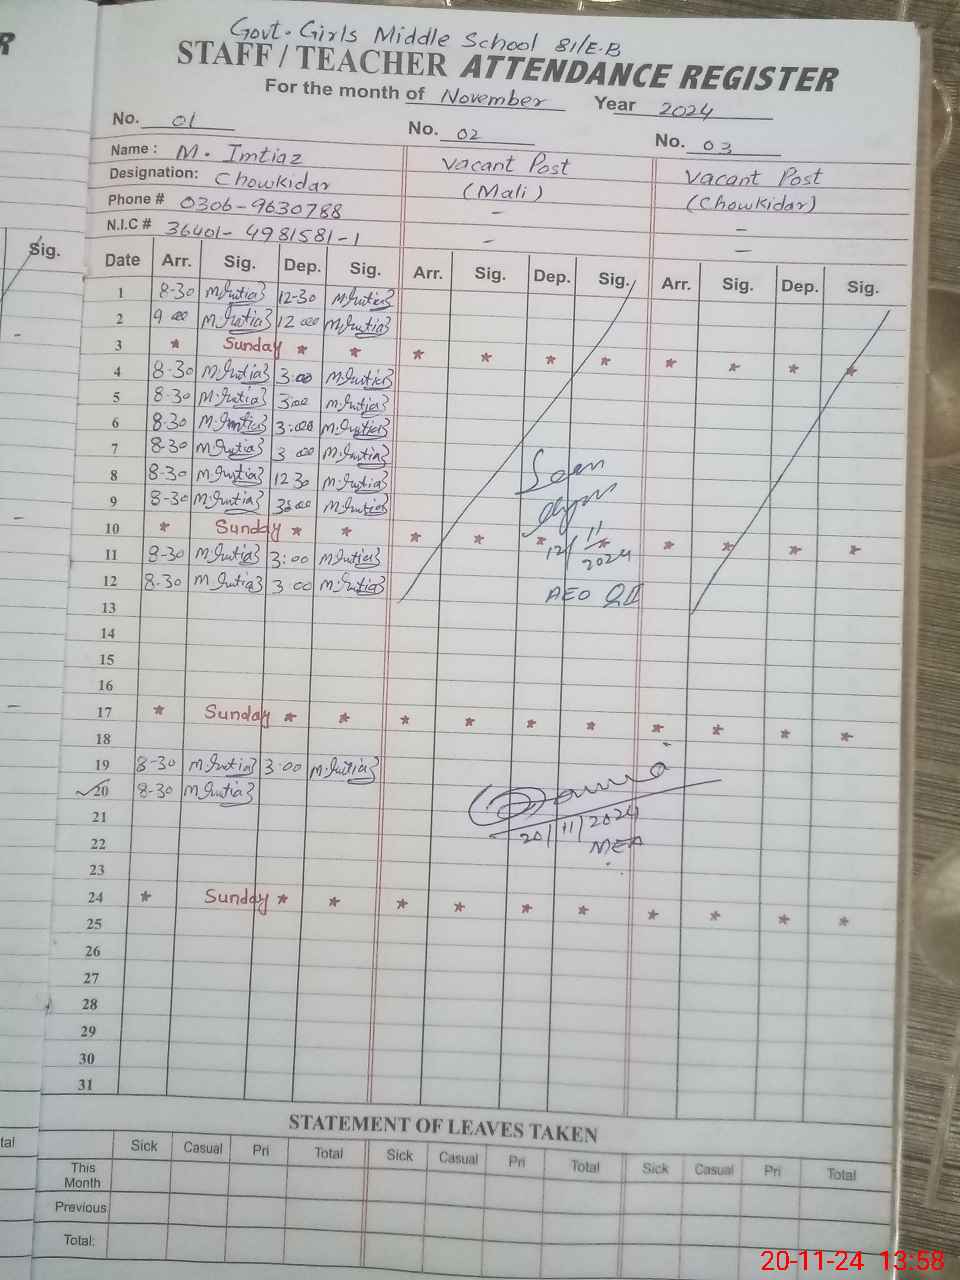 Govt. Girls Middle School 81/E.B
STAFF / TEACHER ATTENDANCE REGISTER
For the month of November Year 2024
No. 01 No. 02 No. 03
Name : M. Imtiaz Vacant Post Vacant Post
Designation: Chowkidar (Mali) (Chowkidar)
Phone # 0306-9630788 - -
N.I.C # 36401-4981581-1 - -
Sig.
Date Arr. Sig. Dep. Sig. Arr. Sig. Dep. Sig. Arr. Sig. Dep. Sig.
1 8-30 M.Imtiaz 12-30 M.Imtiaz
2 9 00 M.Imtiaz 12 00 M.Imtiaz
3 * Sunday * * * * * * * * * *
4 8-30 M.Imtiaz 3:00 M.Imtiaz
5 8-30 M.Imtiaz 3:00 M.Imtiaz
6 8-30 M.Imtiaz 3:00 M.Imtiaz
7 8-30 M.Imtiaz 3 00 M.Imtiaz
8 8-30 M.Imtiaz 12 30 M.Imtiaz
Seen
9 8-30 M.Imtiaz M.Imtiaz
10 * Sunday * * * * * * * * * *
11 8-30 M.Imtiaz 3:00 M.Imtiaz
12/11/2024
12 8-30 M.Imtiaz 3:00 M.Imtiaz
AEO
13
14
15
16
17 * Sunday * * * * * * * * * *
18
19 8-30 M.Imtiaz 3:00 M.Imtiaz
20 8-30 M.Imtiaz
21
20/11/2024
22
MEA
23
24 * Sunday * * * * * * * * * *
25
26
27
28
29
30
31
STATEMENT OF LEAVES TAKEN
Sick Casual Pri Total Sick Casual Pri Total Sick Casual Pri Total
This
Month
Previous
Total:
20-11-24 13:58